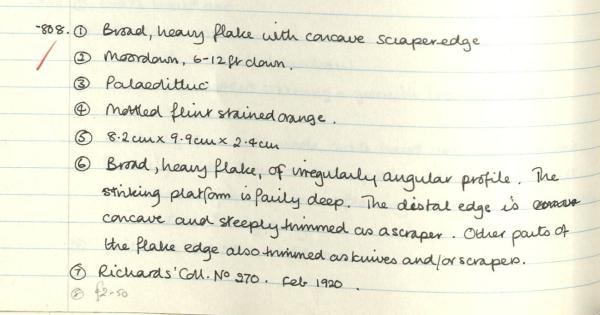 -808. ① Broad, heavy flake with concave scraper edge
② Moordown, 6-12 ft down.
③ Palaeolithic
④ Mottled flint stained orange.
⑤ 8.2cm x 9.9cm x 2.4cm
⑥ Broad, heavy flake, of irregularly angular profile. The
striking platform is fairly deep. The distal edge is
concave and steeply trimmed as a scraper. Other parts of
the flake edge also trimmed as knives and/or scrapers.
⑦ Richards' Coll. No 270. Feb 1920.
⑧ £2-50